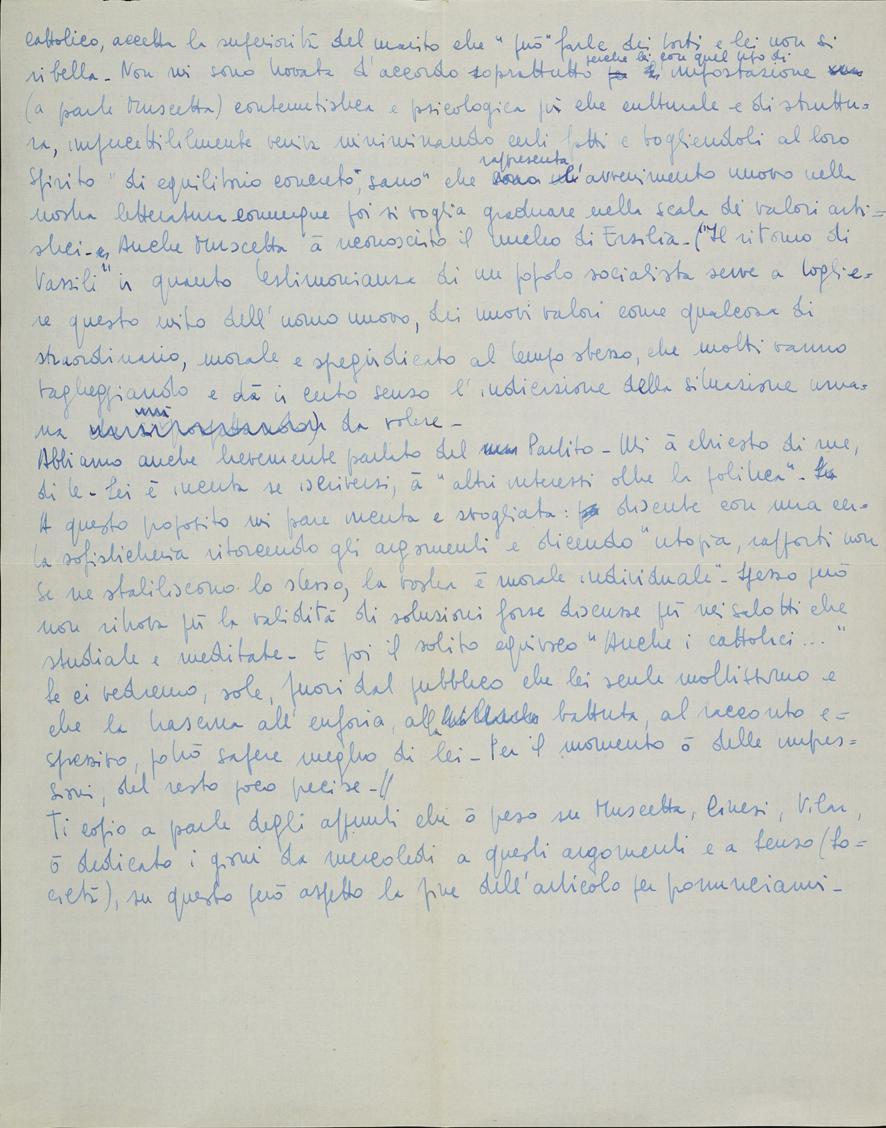 cattolico, accetta la superiorità del marito che "può" farle dei torti e lei non si
ribella - Non mi sono trovata d'accordo soprattutto perché lei, con quel tipo di impostazione
(a parte Muscetta) contenutistica e psicologica più che culturale e di struttu=
ra, impercettibilmente veniva minimizzando certi fatti e togliendoli al loro
spirito "di equilibrio concreto", sano" che rappresenta l'avvenimento nuovo nella
nostra letteratura comunque poi si voglia graduare nella scala dei valori arti=
stici - Anche Muscetta à riconosciuto il nucleo di Ersilia - ("Il ritorno di
Vassili" in quanto testimonianza di un popolo socialista serve a toglie=
re questo mito dell'uomo nuovo, dei nuovi valori come qualcosa di
straordinario, morale e spregiudicato al tempo stesso, che molti vanno
vagheggiando e dà in certo senso l'indicazione della situazione uma=
na da volere -
Abbiamo anche brevemente parlato del Partito - Mi à chiesto di me,
di te - Lei è incerta se iscriversi, à "altri interessi oltre la politica" -
A questo proposito mi pare incerta e svogliata: discute con una cer=
ta sofisticheria ritorcendo gli argomenti e dicendo "utopia, rapporti non
se ne stabiliscono lo stesso, la vostra è morale individuale" - Spesso però
non ritrova più la validità di soluzioni forse discusse più nei salotti che
studiate e meditate - E poi il solito equivoco "Anche i cattolici ..."
Se ci vedremo, sole, fuori dal pubblico che lei sente moltissimo e
che la trascina all'euforia, alla battuta, al racconto e=
spressivo, potrò sapere meglio di lei - Per il momento ò delle impres=
sioni, del resto poco precise - //
Ti copio a parte degli appunti che ò preso su Muscetta, Cinesi, Vilar,
ò dedicato i giorni da mercoledì a questi argomenti e a Senso (So=
cietà), su questo però aspetto la fine dell'articolo per pronunciarmi -